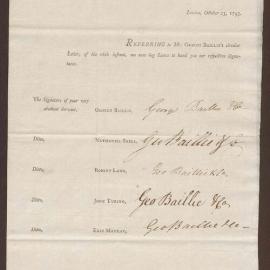 London, October 23, 1793.
REFERRING to Mr. GEORGE BAILLIE's circular
Letter, of the 16th instant, we now beg Leave to hand you our respective Signa-
tures.
The Signature of your very
obedient Servant, GEORGE BAILLIE, George Baillie & Co
Ditto, NATHANIEL Geo Baillie & Co
Ditto, ROBERT LANG, Geo Baillie & Co.
Ditto, JOHN Geo Baillie & Co.
Ditto, Geo Baillie & Co